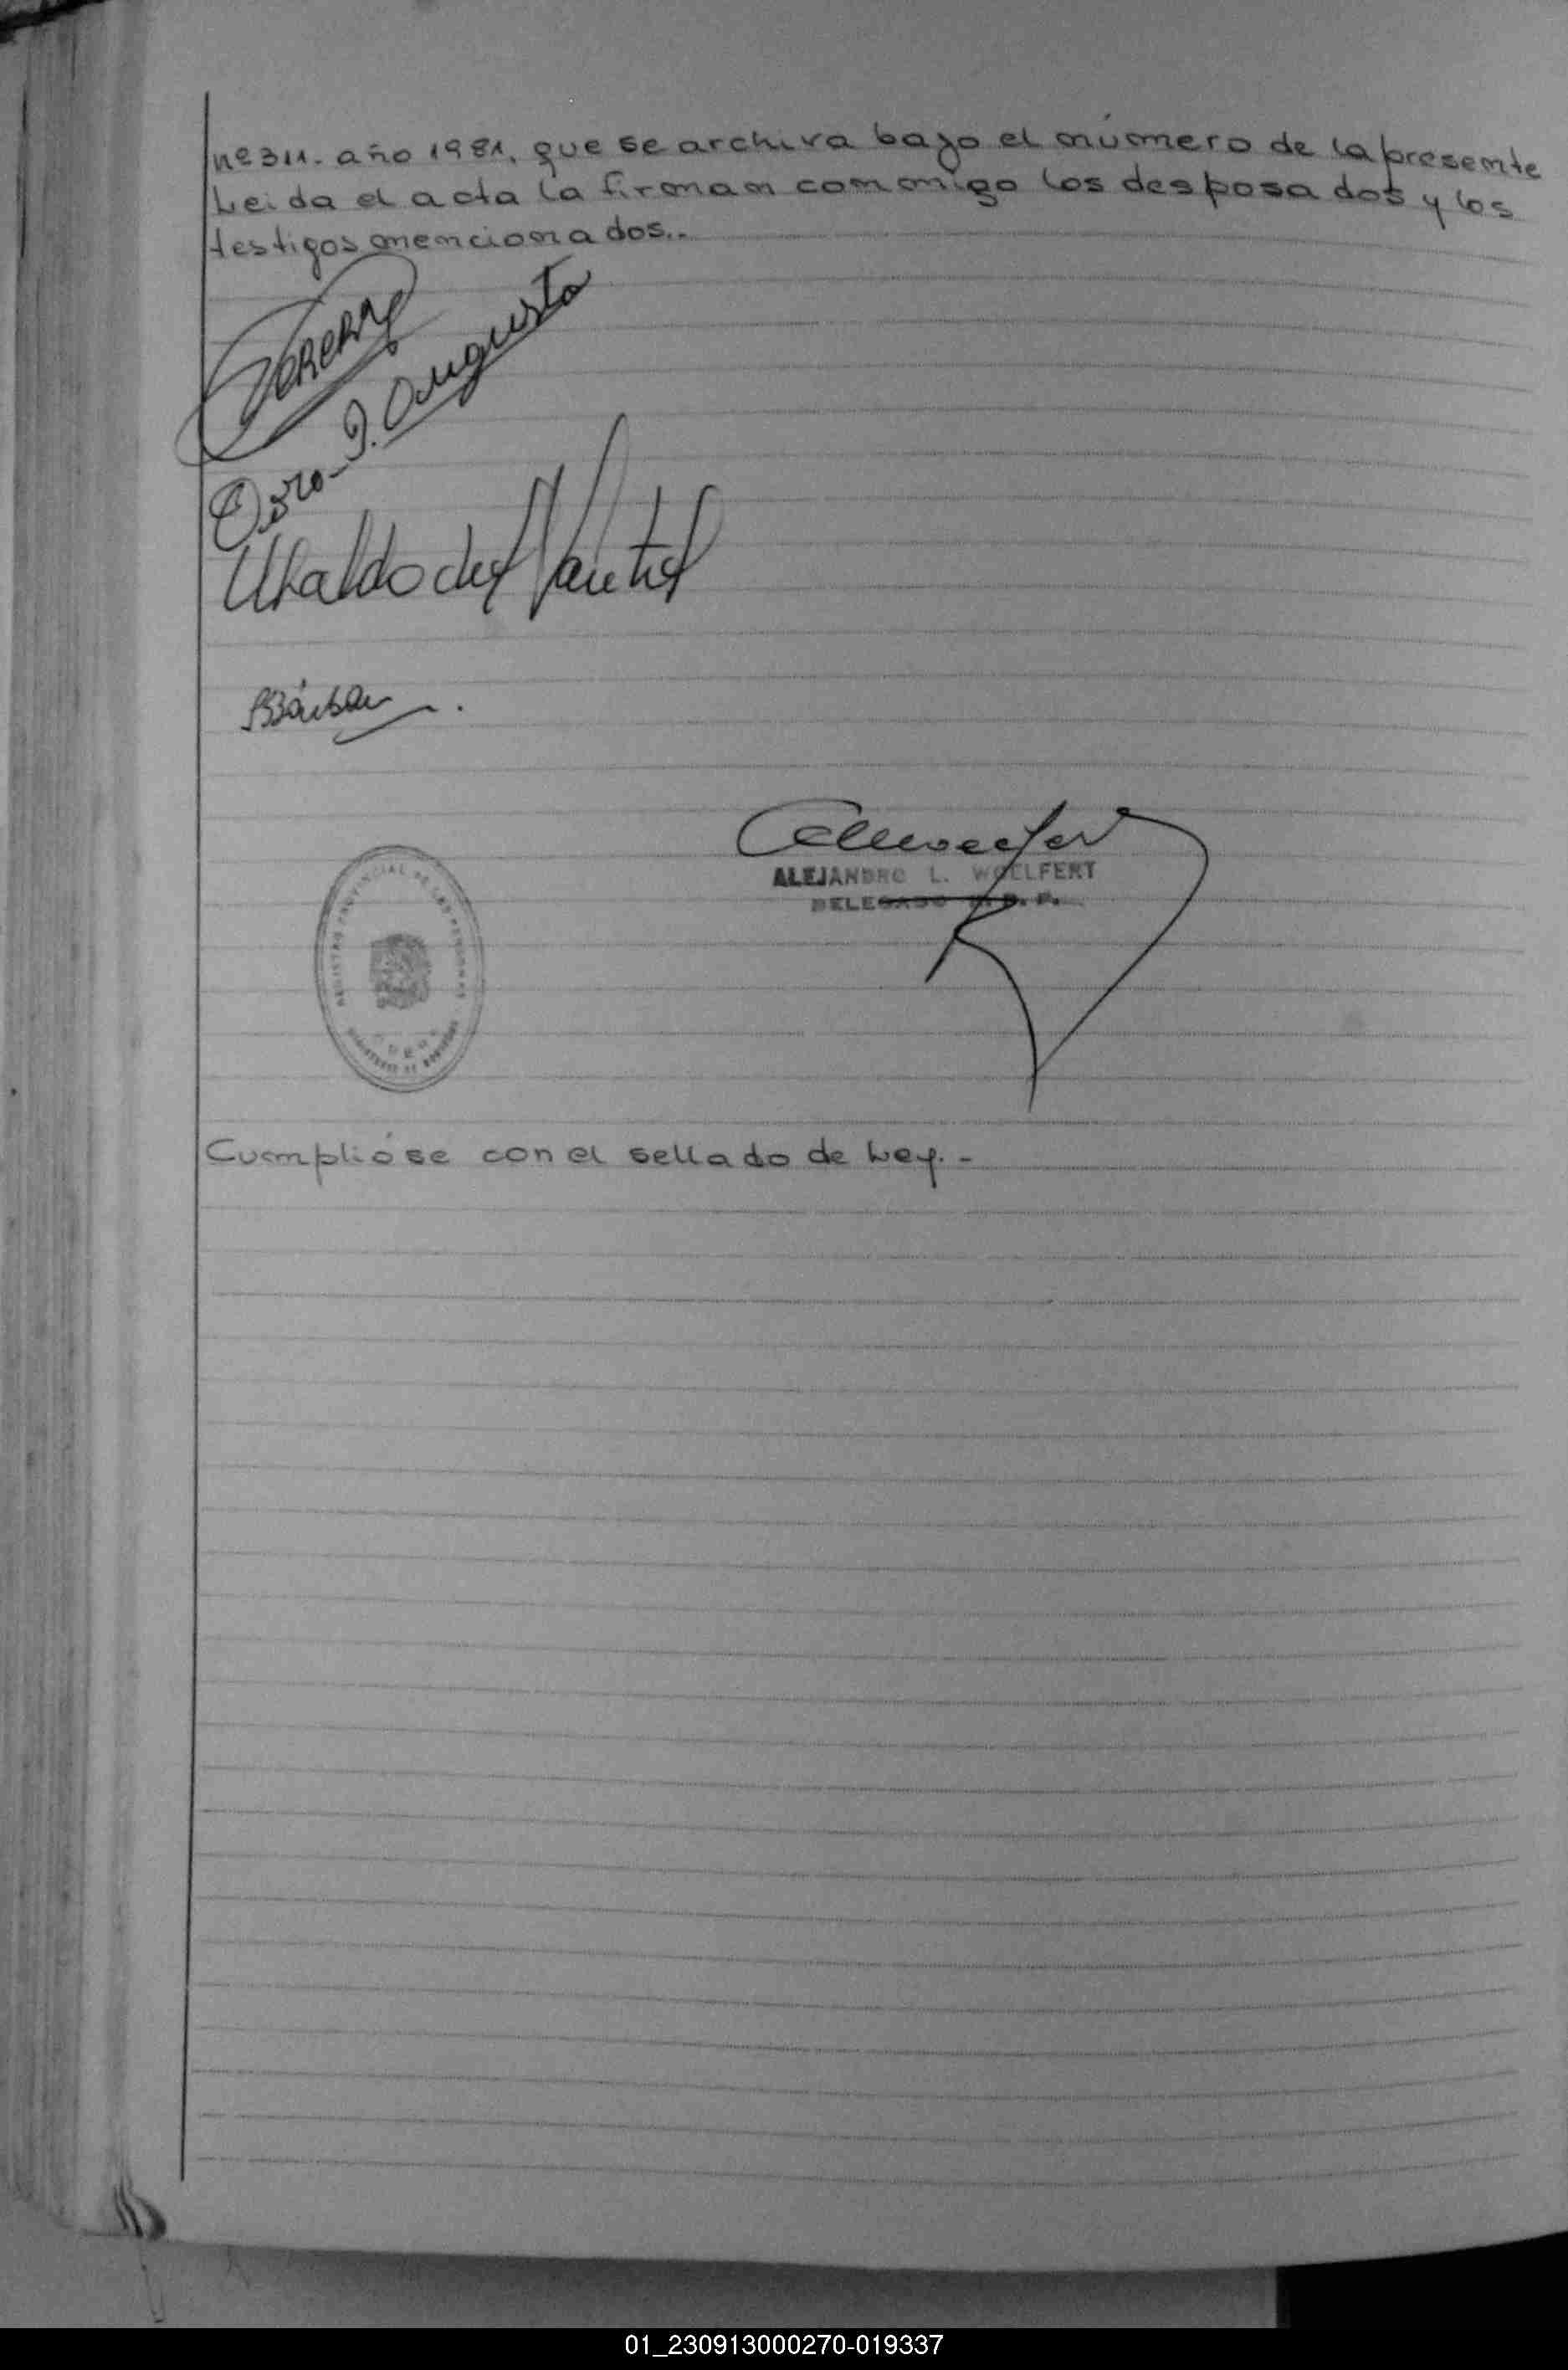 nº 311. año 1981, que se archiva bajo el número de la presente
Leida el acta la firman conmigo los desposados y los
testigos mencionados..
Osro J. Augusto
Ubaldo del
ALEJANDRO L. WOELFERT
DELEGADO
REGISTRO PROVINCIAL DE LAS PERSONAS
Cumplióse con el sellado de Ley. -
01_230913000270-019337